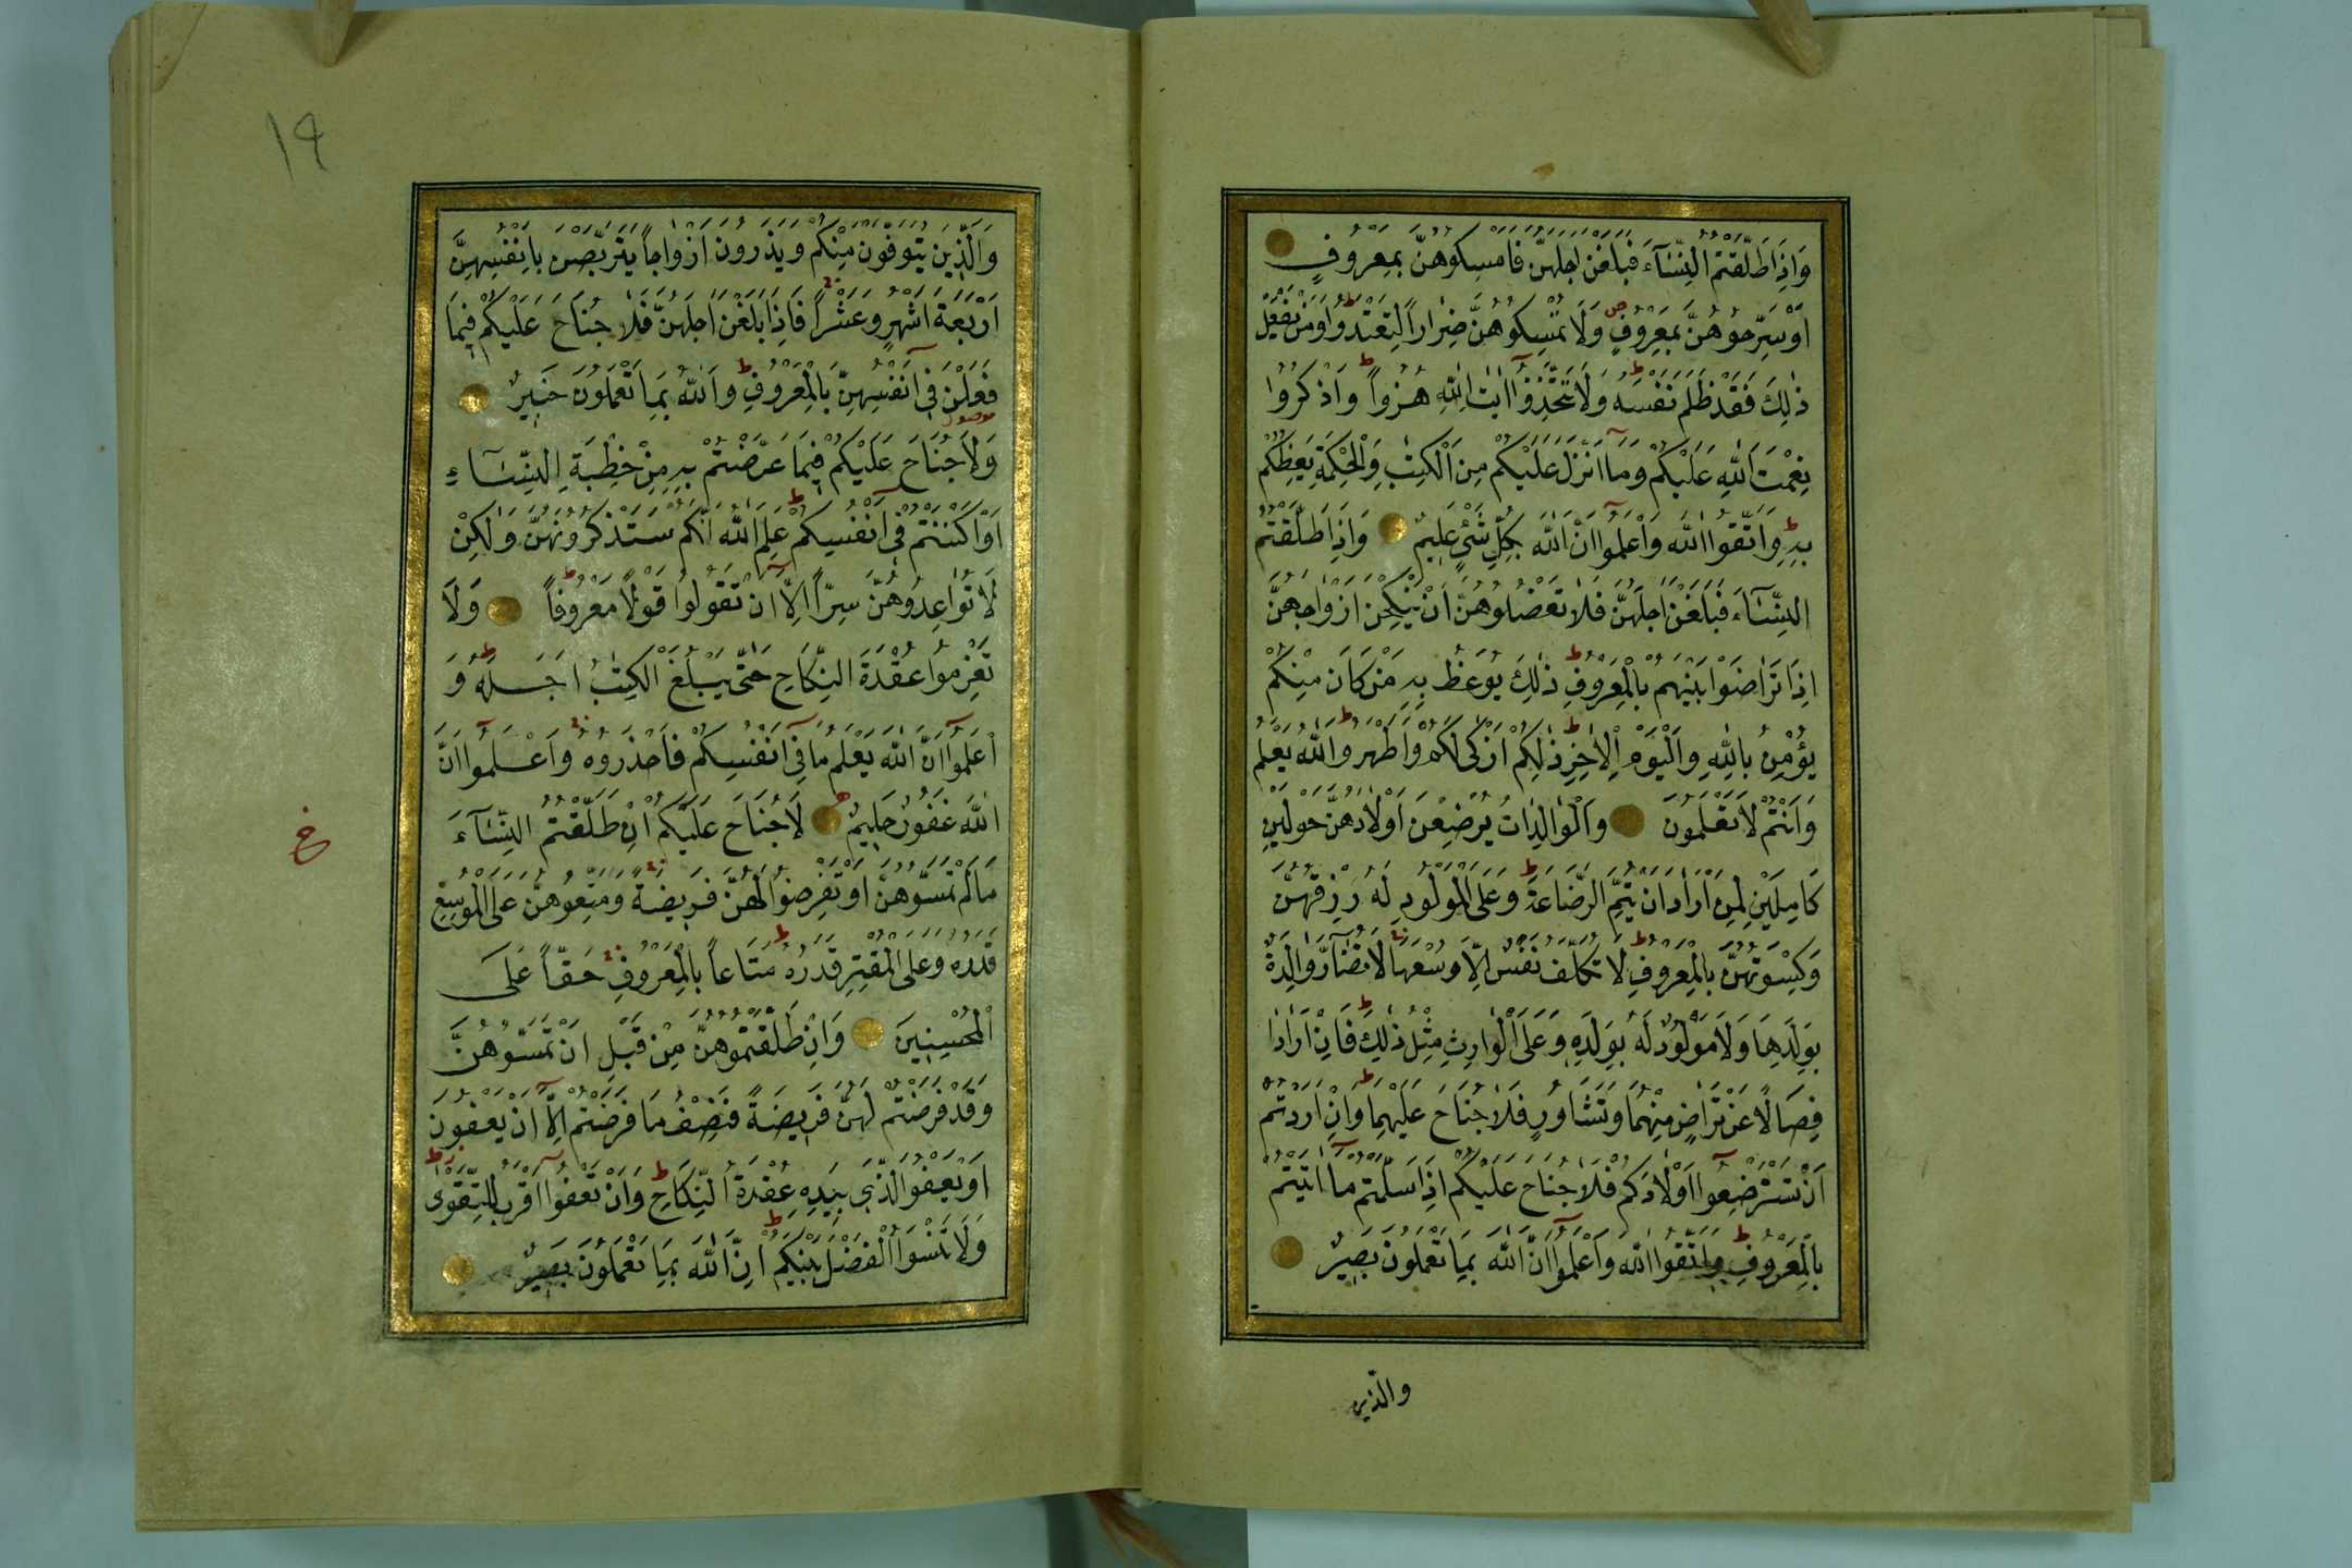 وَاِذَا طَلَّقْتُمُ النِّسَآءَ فَبَلَغْنَ اَجَلَهُنَّ فَاَمْسِكُوهُنَّ بِمَعْرُوفٍ
اَوْ سَرِّحُوهُنَّ بِمَعْرُوفٍ ص وَلَا تُمْسِكُوهُنَّ ضِرَاراً لِتَعْتَدُوا ط وَمَنْ يَفْعَلْ
ذٰلِكَ فَقَدْ ظَلَمَ نَفْسَهُ ط وَلَا تَتَّخِذُوٓا اٰيٰتِ اللّٰهِ هُزُواً ط وَاذْكُرُوا
نِعْمَتَ اللّٰهِ عَلَيْكُمْ وَمَآ اَنْزَلَ عَلَيْكُمْ مِنَ الْكِتٰبِ وَالْحِكْمَةِ يَعِظُكُمْ
بِهِ ط وَاتَّقُوا اللّٰهَ وَاعْلَمُوٓا اَنَّ اللّٰهَ بِكُلِّ شَيْءٍ عَلِيمٌ وَاِذَا طَلَّقْتُمُ
النِّسَآءَ فَبَلَغْنَ اَجَلَهُنَّ فَلَا تَعْضُلُوهُنَّ اَنْ يَنْكِحْنَ اَزْوَاجَهُنَّ
اِذَا تَرَاضَوْا بَيْنَهُمْ بِالْمَعْرُوفِ ط ذٰلِكَ يُوعَظُ بِهِ مَنْ كَانَ مِنْكُمْ
يُؤْمِنُ بِاللّٰهِ وَالْيَوْمِ الْاٰخِرِ ط ذٰلِكُمْ اَزْكٰى لَكُمْ وَاَطْهَرُ ط وَاللّٰهُ يَعْلَمُ
وَاَنْتُمْ لَا تَعْلَمُونَ وَالْوَالِدَاتُ يُرْضِعْنَ اَوْلَادَهُنَّ حَوْلَيْنِ
كَامِلَيْنِ لِمَنْ اَرَادَ اَنْ يُتِمَّ الرَّضَاعَةَ ط وَعَلَى الْمَوْلُودِ لَهُ رِزْقُهُنَّ
وَكِسْوَتُهُنَّ بِالْمَعْرُوفِ ط لَا تُكَلَّفُ نَفْسٌ اِلَّا وُسْعَهَا لَا تُضَآرَّ وَالِدَةٌ
بِوَلَدِهَا وَلَا مَوْلُودٌ لَهُ بِوَلَدِهِ وَعَلَى الْوَارِثِ مِثْلُ ذٰلِكَ ط فَاِنْ اَرَادَا
فِصَالًا عَنْ تَرَاضٍ مِنْهُمَا وَتَشَاوُرٍ فَلَا جُنَاحَ عَلَيْهِمَا ط وَاِنْ اَرَدْتُمْ
اَنْ تَسْتَرْضِعُوٓا اَوْلَادَكُمْ فَلَا جُنَاحَ عَلَيْكُمْ اِذَا سَلَّمْتُمْ مَآ اٰتَيْتُمْ
بِالْمَعْرُوفِ ط وَاتَّقُوا اللّٰهَ وَاعْلَمُوٓا اَنَّ اللّٰهَ بِمَا تَعْمَلُونَ بَصِيرٌ
والّذين
١٩
وَالَّذِينَ يُتَوَفَّوْنَ مِنْكُمْ وَيَذَرُونَ اَزْوَاجاً يَتَرَبَّصْنَ بِاَنْفُسِهِنَّ
اَرْبَعَةَ اَشْهُرٍ وَعَشْراً فَاِذَا بَلَغْنَ اَجَلَهُنَّ فَلَا جُنَاحَ عَلَيْكُمْ فِيمَا
فَعَلْنَ فِٓى اَنْفُسِهِنَّ بِالْمَعْرُوفِ ط وَاللّٰهُ بِمَا تَعْمَلُونَ خَبِيرٌ
وَلَا جُنَاحَ عَلَيْكُمْ فِيمَا عَرَّضْتُمْ بِهِ مِنْ خِطْبَةِ النِّسَآءِ
اَوْ اَكْنَنْتُمْ فِٓى اَنْفُسِكُمْ ط عَلِمَ اللّٰهُ اَنَّكُمْ سَتَذْكُرُونَهُنَّ وَلٰكِنْ
لَا تُوَاعِدُوهُنَّ سِرّاً اِلَّآ اَنْ تَقُولُوا قَوْلًا مَعْرُوفاً ط وَلَا
تَعْزِمُوا عُقْدَةَ النِّكَاحِ حَتّٰى يَبْلُغَ الْكِتٰبُ اَجَلَهُ ط وَ
اعْلَمُوٓا اَنَّ اللّٰهَ يَعْلَمُ مَا فِٓى اَنْفُسِكُمْ فَاحْذَرُوهُ وَاعْلَمُوٓا اَنَّ
اللّٰهَ غَفُورٌ حَلِيمٌ لَا جُنَاحَ عَلَيْكُمْ اِنْ طَلَّقْتُمُ النِّسَآءَ
مَا لَمْ تَمَسُّوهُنَّ اَوْ تَفْرِضُوا لَهُنَّ فَرِيضَةً وَمَتِّعُوهُنَّ عَلَى الْمُوسِعِ
قَدَرُهُ وَعَلَى الْمُقْتِرِ قَدَرُهُ ط مَتَاعاً بِالْمَعْرُوفِ حَقّاً عَلَى
الْمُحْسِنِينَ وَاِنْ طَلَّقْتُمُوهُنَّ مِنْ قَبْلِ اَنْ تَمَسُّوهُنَّ
وَقَدْ فَرَضْتُمْ لَهُنَّ فَرِيضَةً فَنِصْفُ مَا فَرَضْتُمْ اِلَّآ اَنْ يَعْفُونَ
اَوْ يَعْفُوَا الَّذِى بِيَدِهِ عُقْدَةُ النِّكَاحِ ط وَاَنْ تَعْفُوٓا اَقْرَبُ لِلتَّقْوٰى ط
وَلَا تَنْسَوُا الْفَضْلَ بَيْنَكُمْ ط اِنَّ اللّٰهَ بِمَا تَعْمَلُونَ بَصِيرٌ